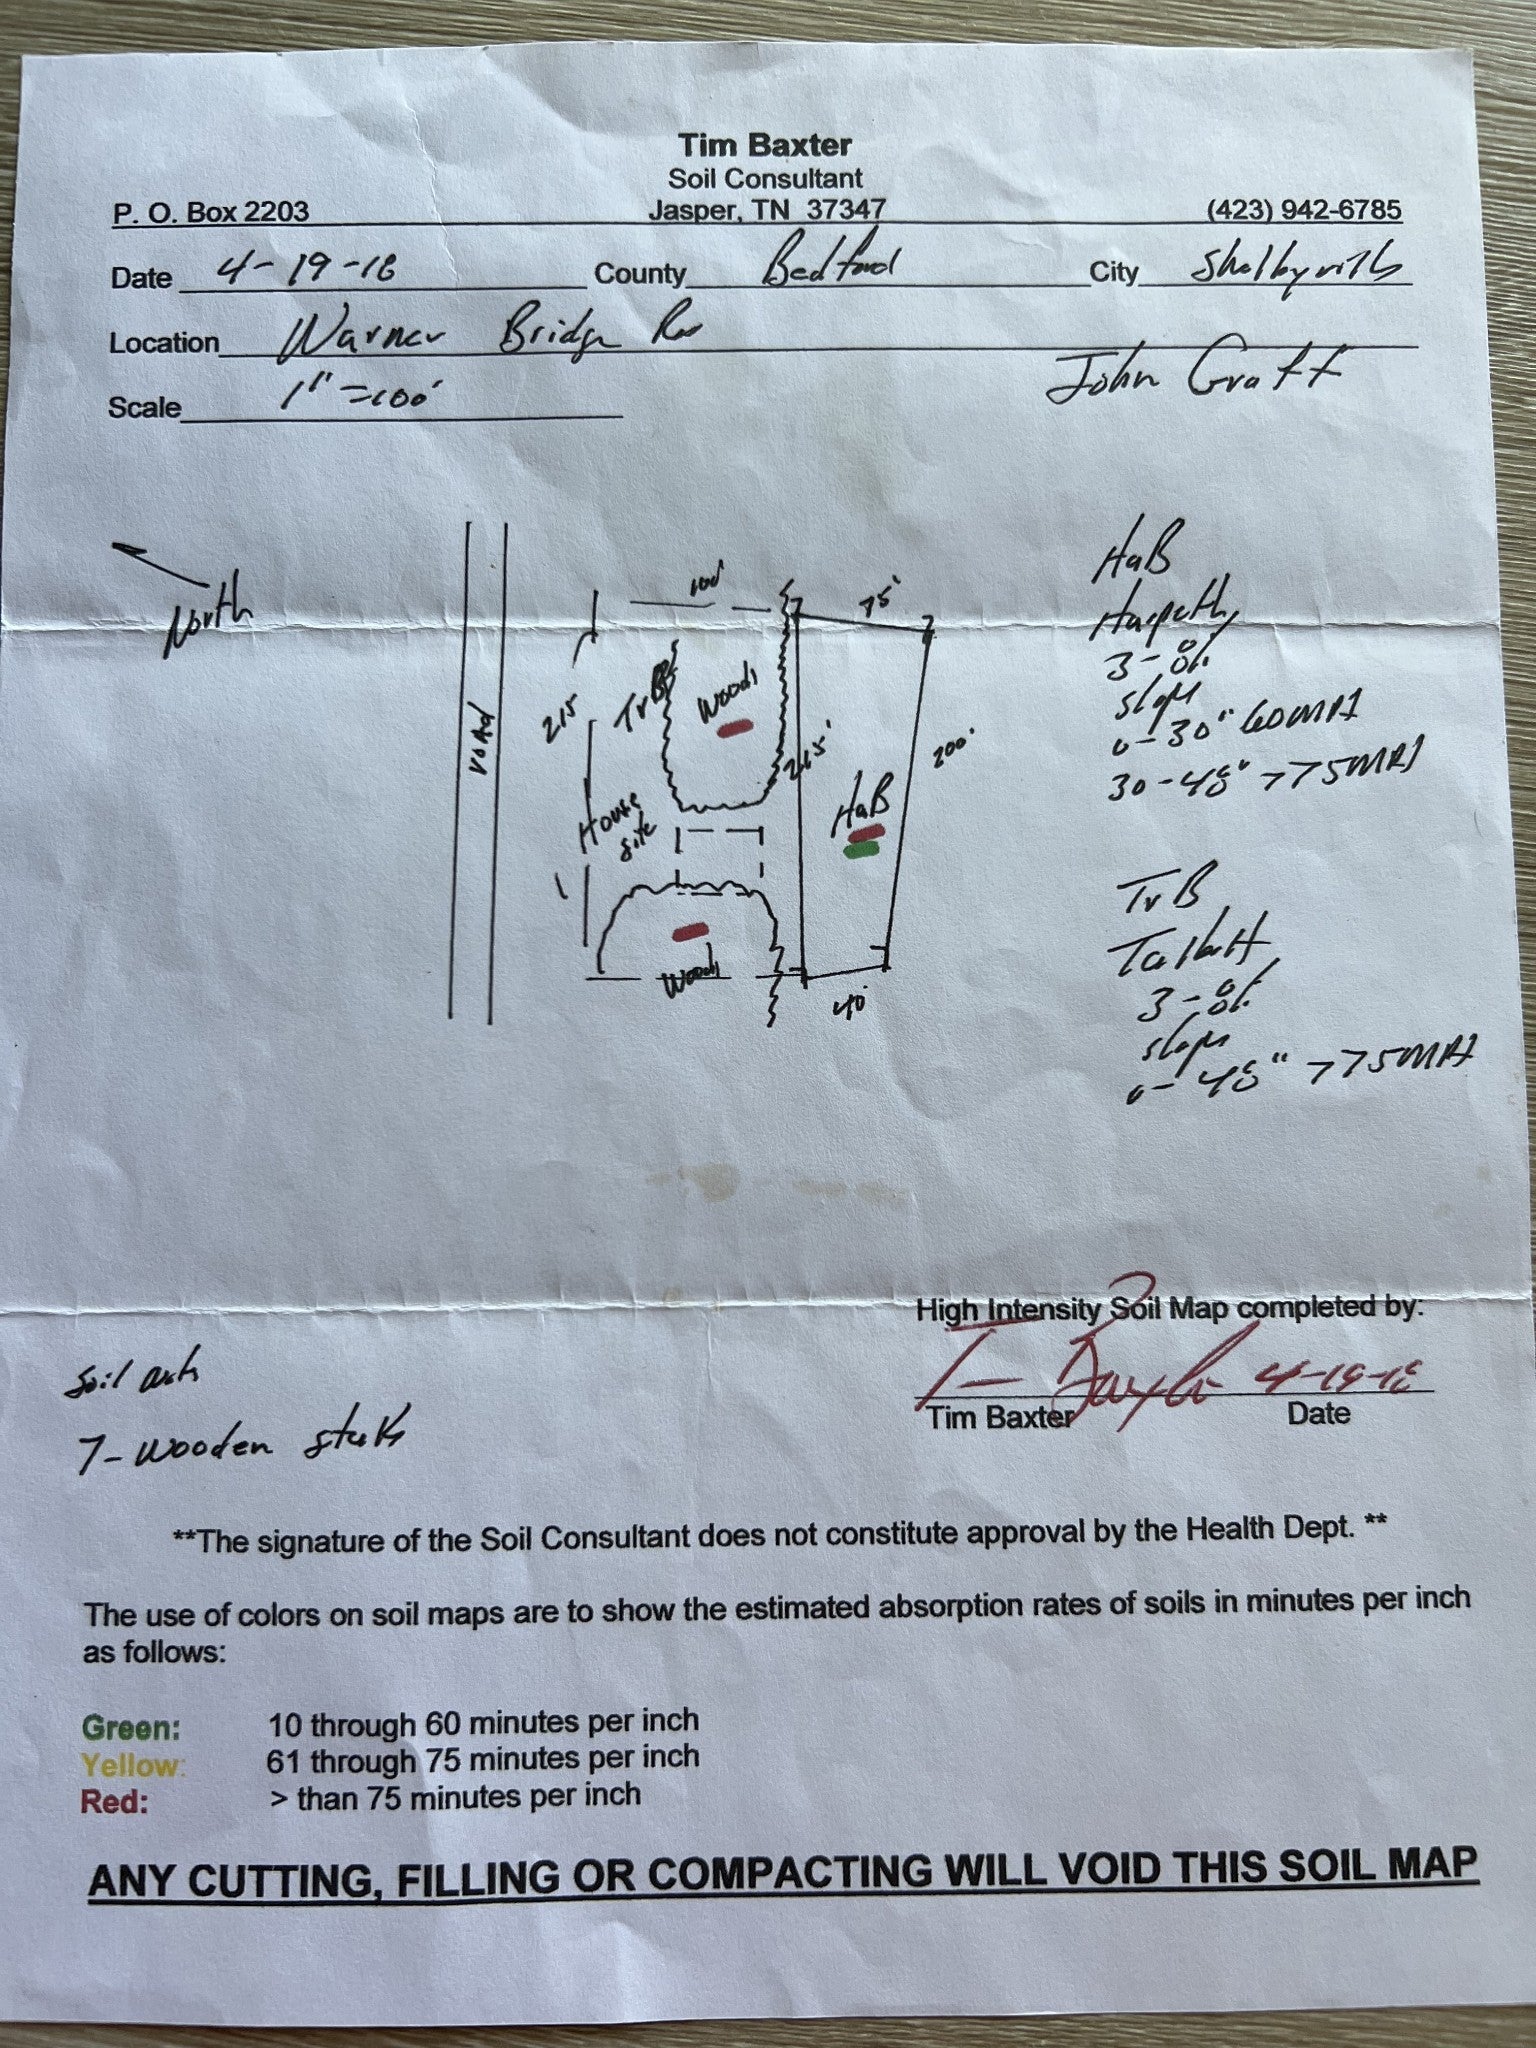 Tim Baxter
Soil Consultant
P. O. Box 2203 Jasper, TN 37347 (423) 942-6785
Date 4-19-18 County Bedford City Shelbyville
Location Warner Bridge Rd
Scale 1"=100' John Graff
North
Road
100'
75'
215
TrB
Woods
215'
200'
House
site
HaB
Woods
40'
HaB
Harpeth
3-8%
slope
0-30" 60MPI
30-48" >75MPI
TrB
Talbott
3-8%
slope
0-48" >75MPI
High Intensity Soil Map completed by:
Tim Baxter 4-19-18
Tim Baxter Date
Soil
7-wooden stakes
**The signature of the Soil Consultant does not constitute approval by the Health Dept. **
The use of colors on soil maps are to show the estimated absorption rates of soils in minutes per inch
as follows:
Green: 10 through 60 minutes per inch
Yellow: 61 through 75 minutes per inch
Red: > than 75 minutes per inch
ANY CUTTING, FILLING OR COMPACTING WILL VOID THIS SOIL MAP